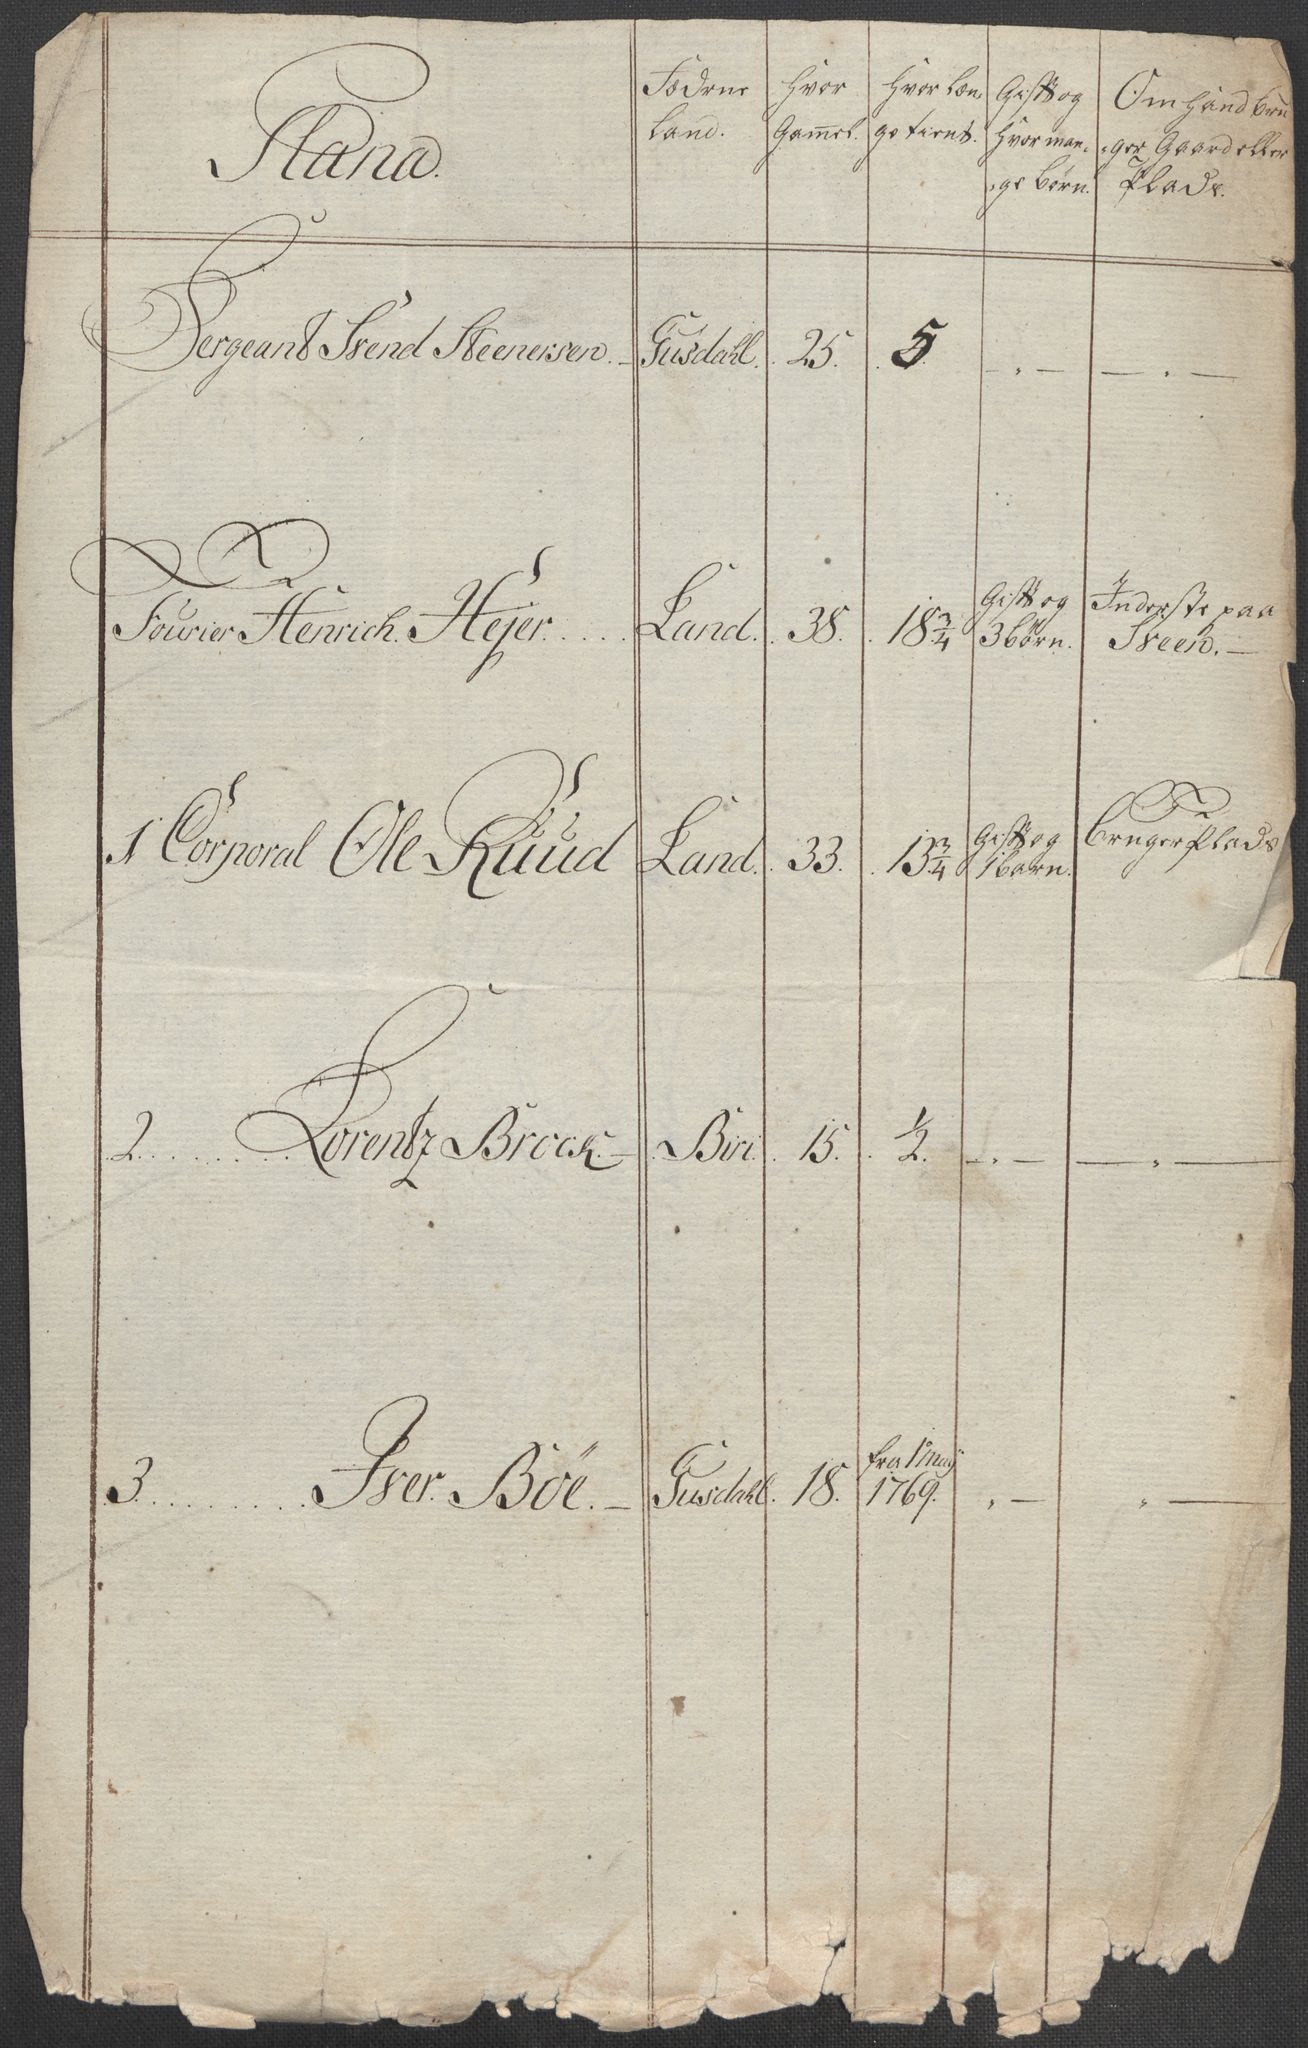 Stand. Fødene Land. Hvor Gamel. Hvor læn„ ge tient. Gift og Hvor man„ „ge børn. Om hand bru „ger Gaard eller Plads.
Sergeant Svend Steenersen. Gusdahl. 25. 5. „ „
Fourier Henrich Hejer. Land. 38. 18 3/4 Gift og 3 børn. Inderste paa Sveen.
1 Corporal Ole Ruud Land. 33. 13 3/4 Gift og 1 barn. bruger Plads
2 Lorentz Brock. Biri. 15. 1/2. „ „
3 Iver Böe. Gusdahl. 18. fra 1 may 1769. „ „